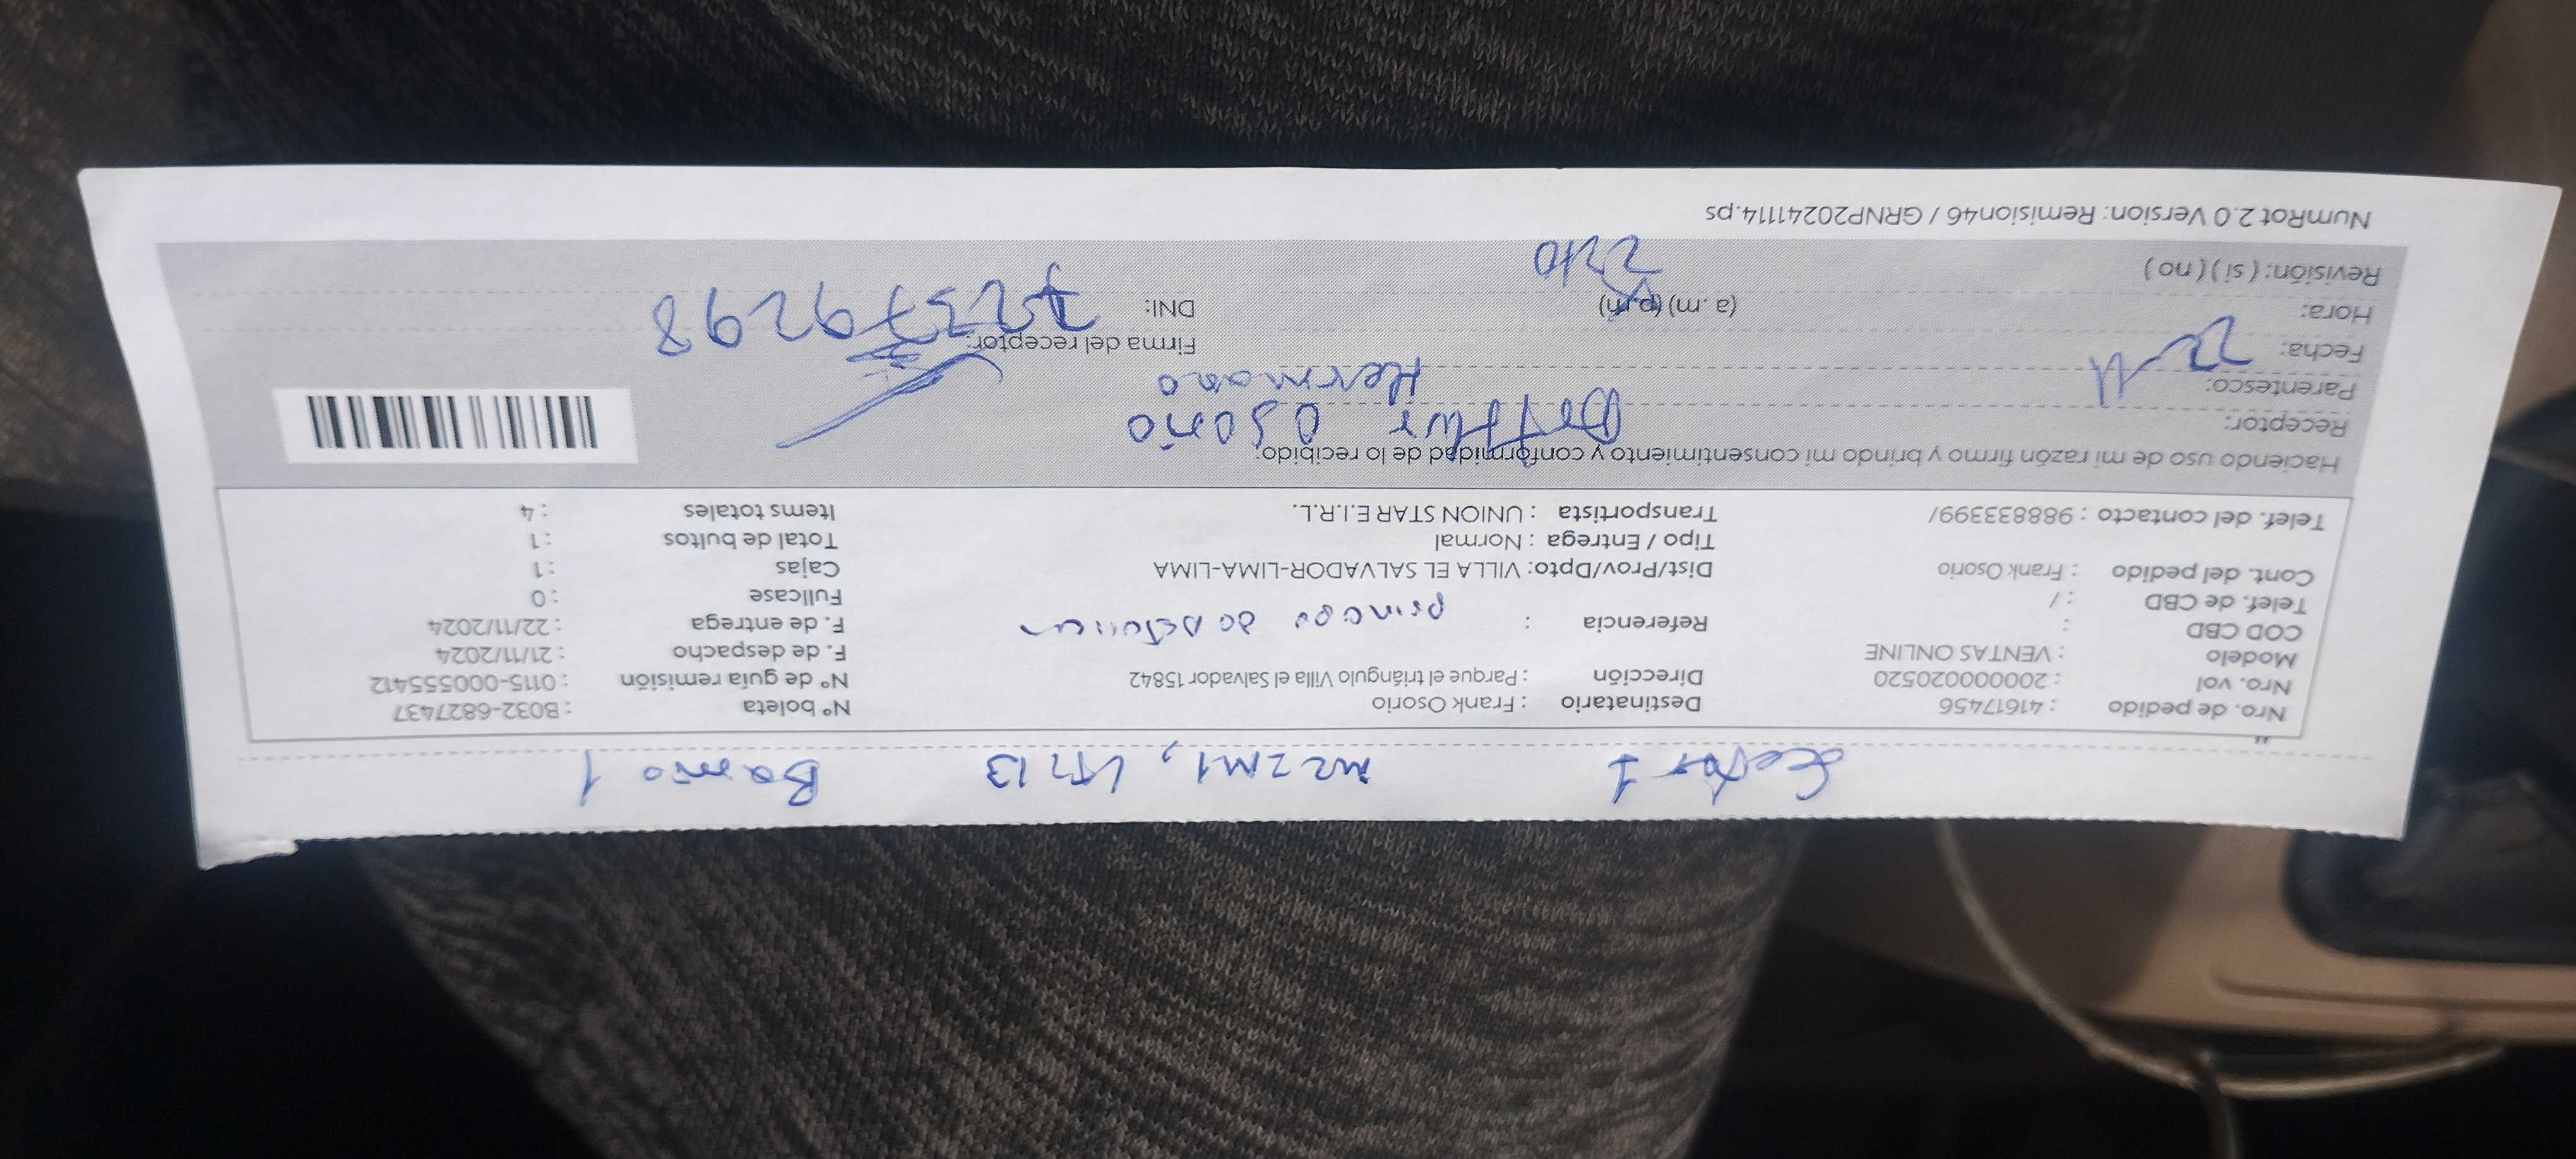 Sector 1 MZ ZM1, LT 13 Barrio 1
Nro. de pedido : 41617456 Destinatario : Frank Osorio N° boleta : B032-6827437
Nro. vol : 2000000020520 Dirección : Parque el triángulo Villa el Salvador 15842 N° de guía remisión : 0115-000555412
Modelo : VENTAS ONLINE F. de despacho : 21/11/2024
COD CBD : Referencia : F. de entrega : 22/11/2024
Telef. de CBD : / Fullcase : 0
Cont. del pedido : Frank Osorio Dist/Prov/Dpto: VILLA EL SALVADOR-LIMA-LIMA Cajas : 1
Tipo / Entrega : Normal Total de bultos : 1
Telef. del contacto : 988833399/ Transportista : UNION STAR E.I.R.L. Items totales : 4
Haciendo uso de mi razón firmo y brindo mi consentimiento y conformidad de lo recibido:
Receptor: Osorio
Parentesco: Hermano
Fecha: 22 11 Firma del receptor:
Hora: (a.m) (p.m) DNI: 72379298
Revisión: ( si ) ( no )
NumRot 2.0 Version: Remision46 / GRNP20241114.ps